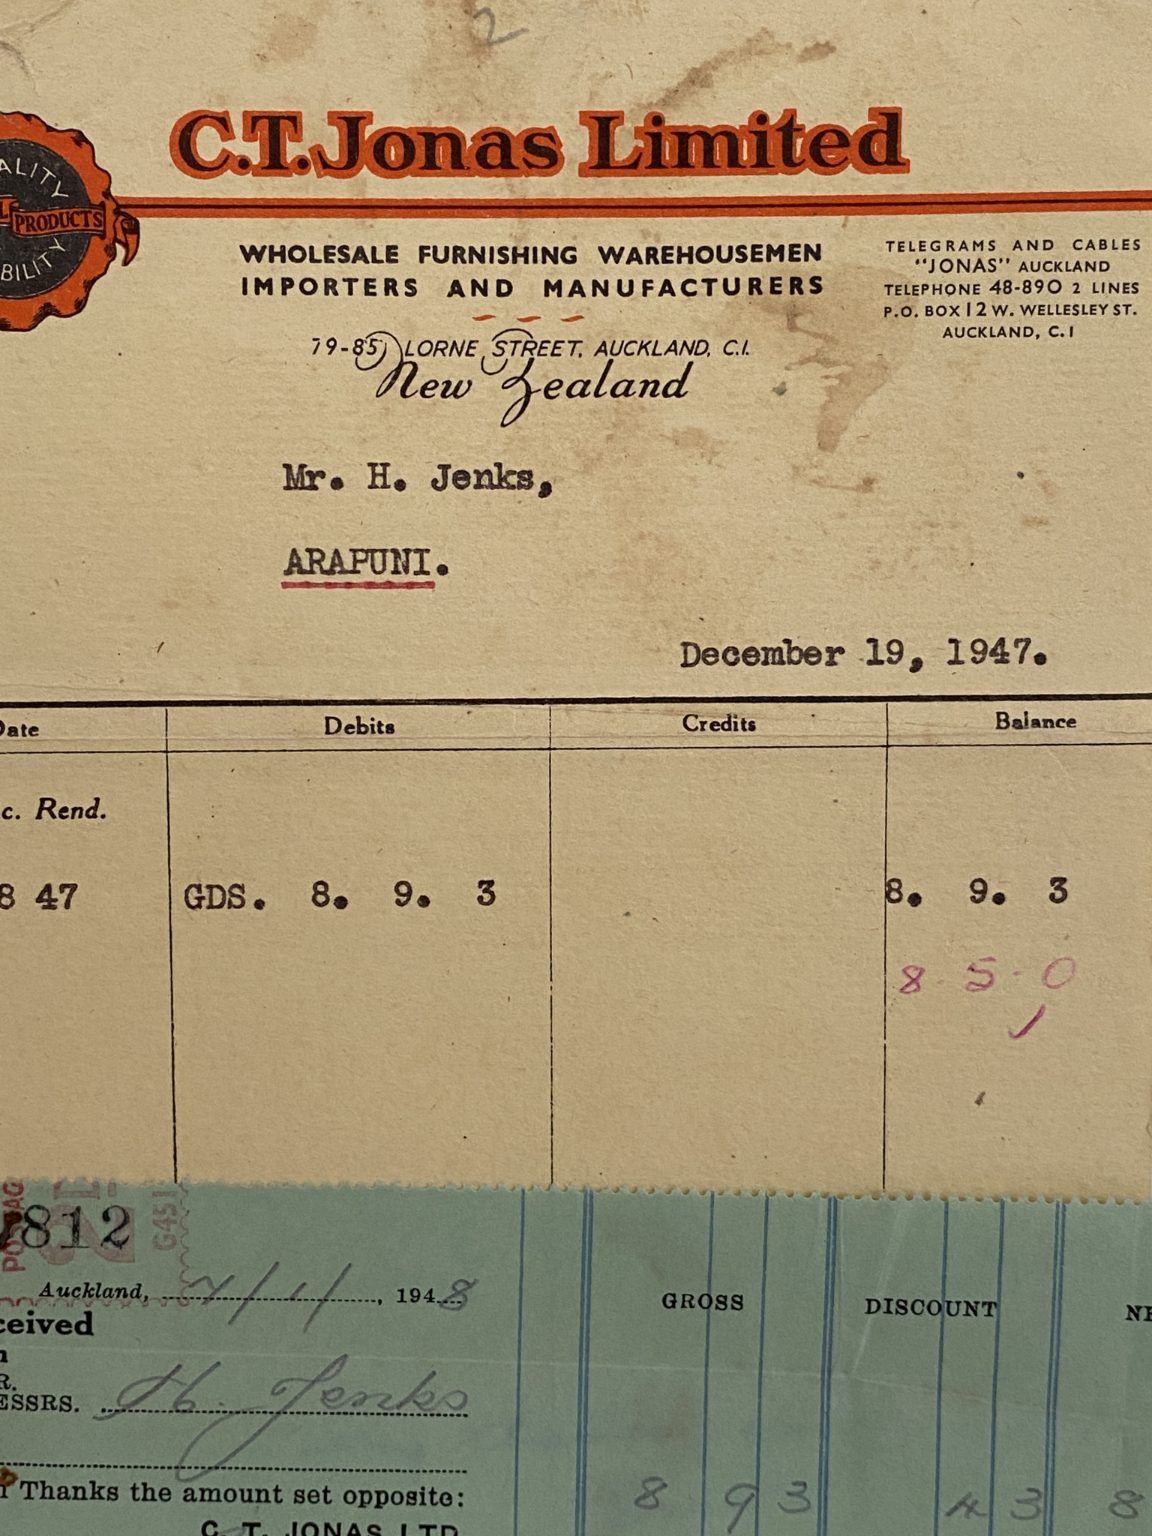 2
C.T. Jonas Limited
PRODUCTS
WHOLESALE FURNISHING WAREHOUSEMEN
IMPORTERS AND MANUFACTURERS
79-85, LORNE STREET, AUCKLAND, C.1.
New Zealand
TELEGRAMS AND CABLES
"JONAS" AUCKLAND
TELEPHONE 48-890 2 LINES
P.O. BOX 12 W. WELLESLEY ST.
AUCKLAND, C.1
Mr. H. Jenks,
ARAPUNI.
December 19, 1947.
Date Debits Credits Balance
c. Rend.
8 47 GDS. 8. 9. 3 8. 9. 3
8 - 5 - 0
812
G451
Auckland, 7/1/, 1948
GROSS DISCOUNT NE
ceived
R.
ESSRS. H. Jenks
Thanks the amount set opposite:
8 9 3 4 3 8
C. T. JONAS LTD.